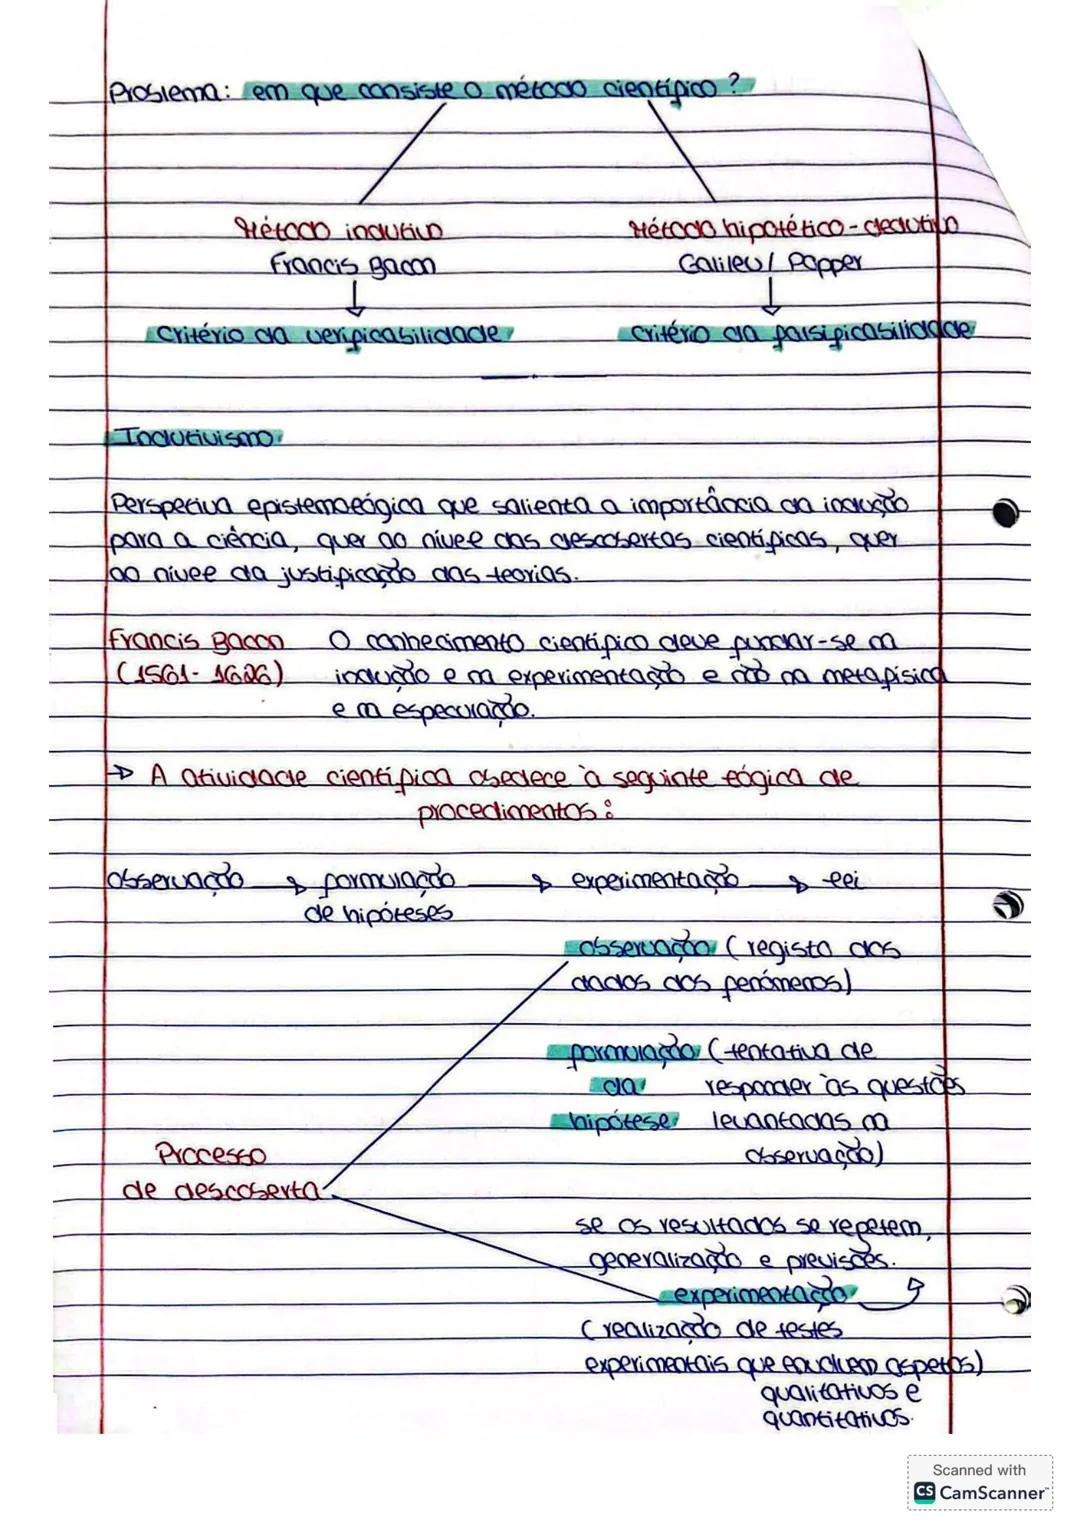 Problema: em que consiste o método científico?
Método indutivo
Francis Bacon
critério da verificabilidade
Método hipotético-dedutivo
Galileu/ Popper
critério da falsificabilidade
Indutivismo
Perspetiva epistemológica que salienta a importância da indução
para a ciência, quer ao nível das descobertas científicas, quer
ao nível da justificação das teorias.
Francis Bacon
(1561-1626)
O conhecimento científico deve fundar-se na
indução e na experimentação e não na metafísica
e na especulação.
→ A atividade científica obedece à seguinte lógica de
procedimentos:
observação → formulação → experimentação → lei
de hipóteses
Processo
de descoberta
observação (registo dos
dados dos fenómenos)
formulação (tentativa de
da responder às questões
hipótese levantadas na
observação)
se os resultados se repetem,
generalização e previsões.
experimentação
(realização de testes
experimentais que envolvem aspetos)
qualitativos e
quantitativos.
Scanned with
CS CamScanner